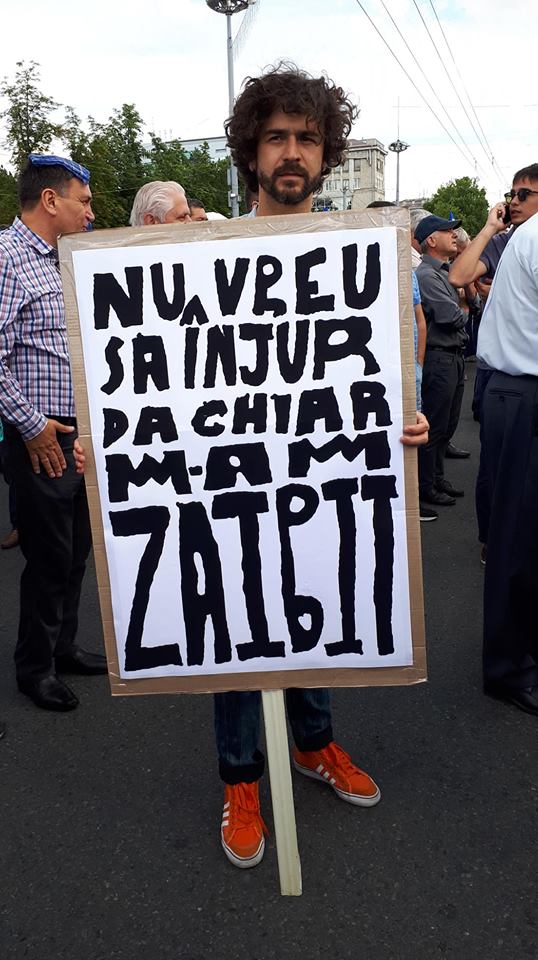 NU VREU
SA ÎNJUR
DA CHIAR
M-AM
ZAIBIT